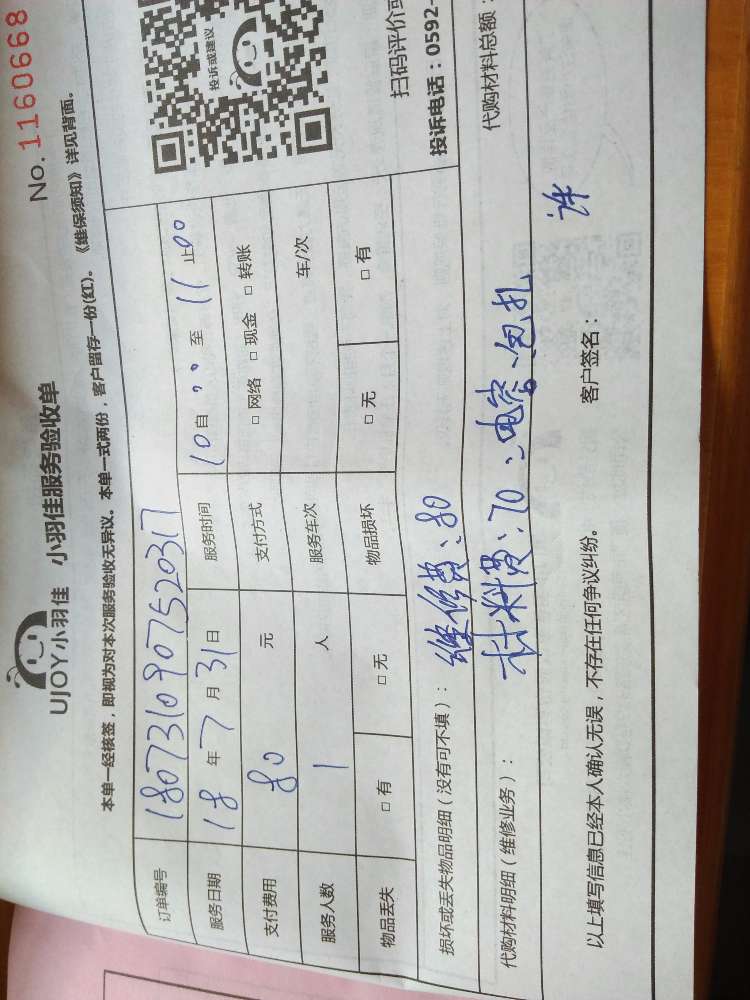 No.1160668
UJOY小羽佳 小羽佳服务验收单
本单一经核签，即视为对本次服务验收无异议。本单一式两份，客户留存一份(红)。《维保须知》详见背面。
订单编号 180731090752031
服务日期 18 年 7 月 31 日 服务时间 10 自 00 至 11 止 00
支付费用 80 元 支付方式 □ 网络 □ 现金 □ 转账
服务人数 1 人 服务车次 车/次
物品丢失 □ 有 □ 无 物品损坏 □ 无 □ 有
投诉或建议
扫码评价或
投诉电话：0592-
损坏或丢失物品明细（没有可不填）： 维修费：80
代购材料明细（维修业务）： 材料费：70：电容、包扎 代购材料总额：
以上填写信息已经本人确认无误，不存在任何争议纠纷。 客户签名： 许